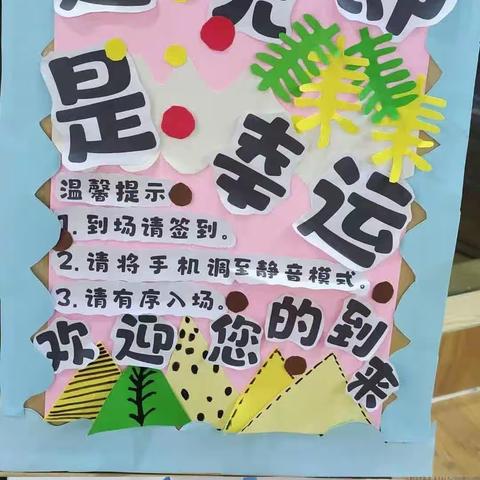 遇见即
是幸运
温馨提示
1. 到场请签到。
2. 请将手机调至静音模式。
3. 请有序入场。
欢迎您的到来